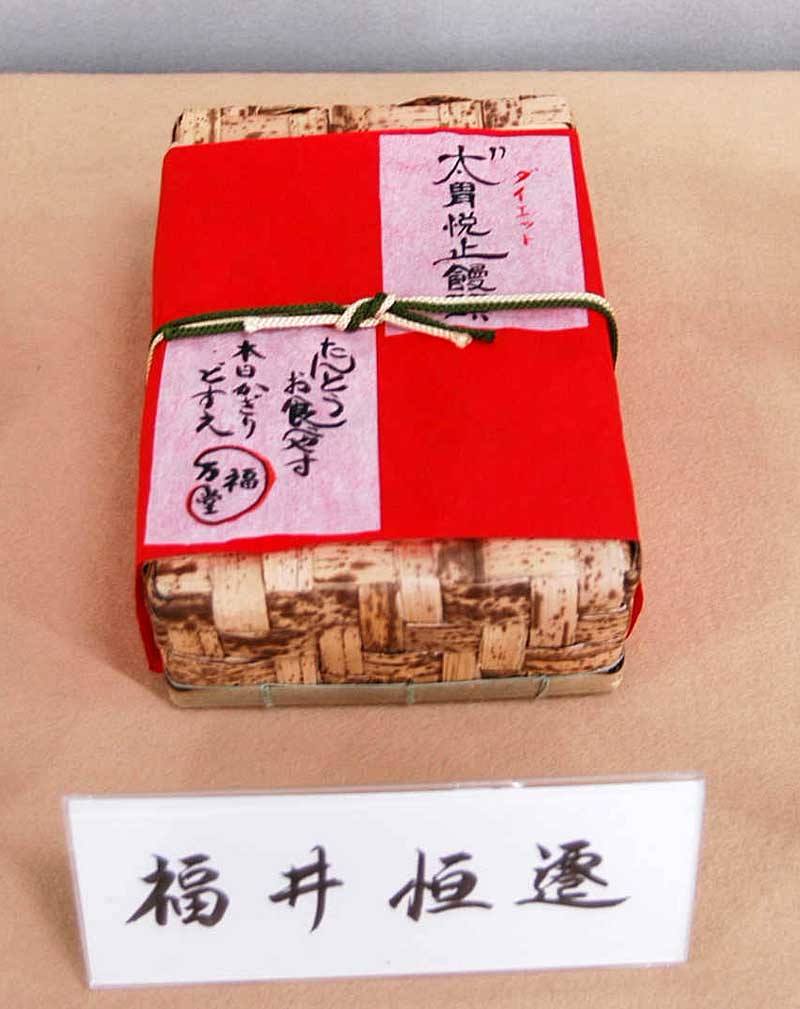 ダイエット
太゛胃悦止饅頭
たんとう
お食べやす
本日かぎり
どすえ
福
万堂
福井恒遷